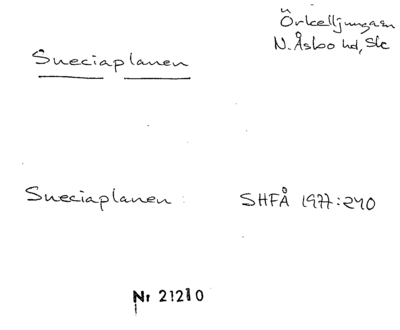 Örkelljunga sn
N. Åsbo hd, Sk
Sueciaplanen
Sueciaplanen : SHFÅ 1977:240
Nr 21210